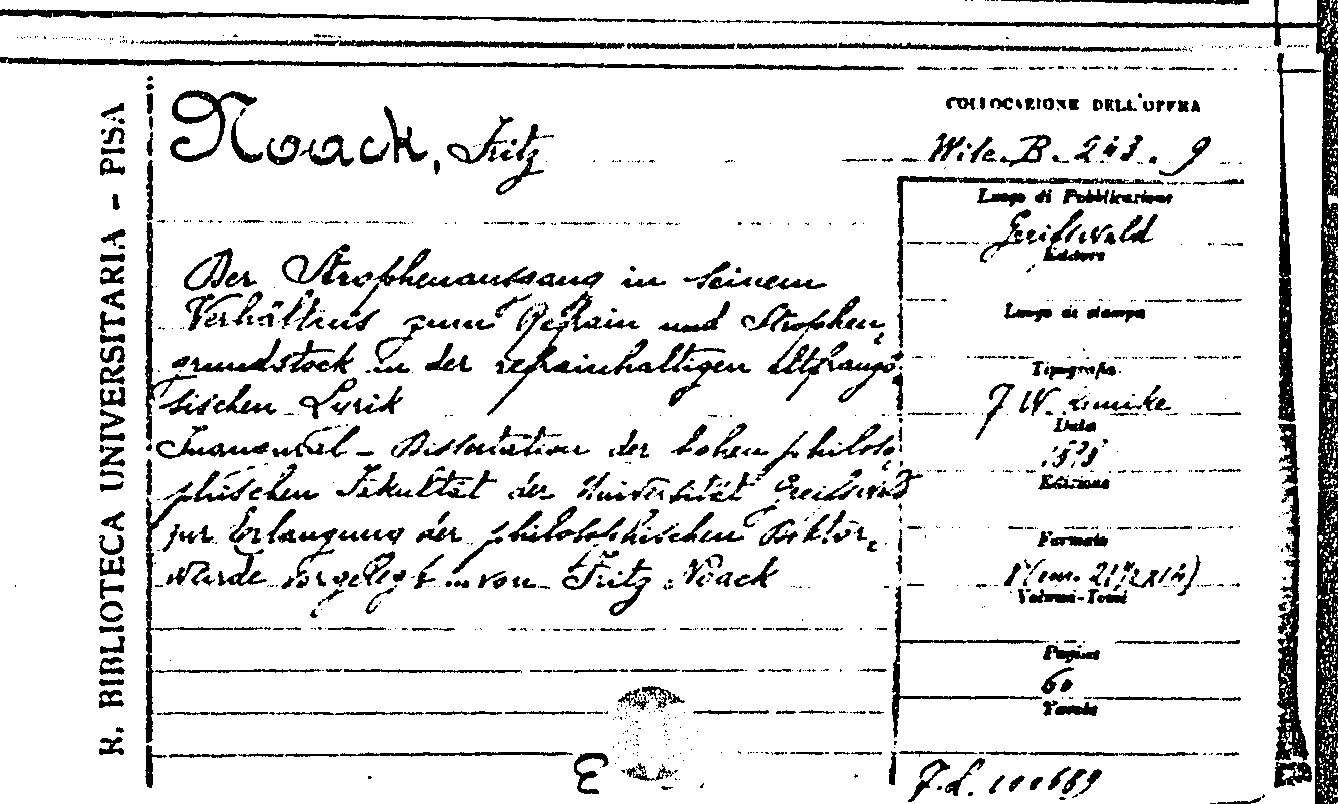 R. BIBLIOTECA UNIVERSITARIA - PISA
Noack, Fritz
Der Strophenausgang in seinem
Verhältnis zum Refrain und Strophen-
grundstock in der refrainhaltigen altfranzö-
sischen Lyrik
Inaugural - Dissertation der hohen philoso-
phischen Fakultät der Universität Greifswald
zur Erlangung der philosophischen Doktor-
würde vorgelegt von Fritz Noack
E
COLLOCAZIONE DELL'OPERA
B. 243. 9
Luogo di Pubblicazione
Greifswald
Editore
Luogo di stampa
Tipografia
J W. Kunike
Data
Edizione
Formato
Volumi-Tomi
Pagine
60
Tavole